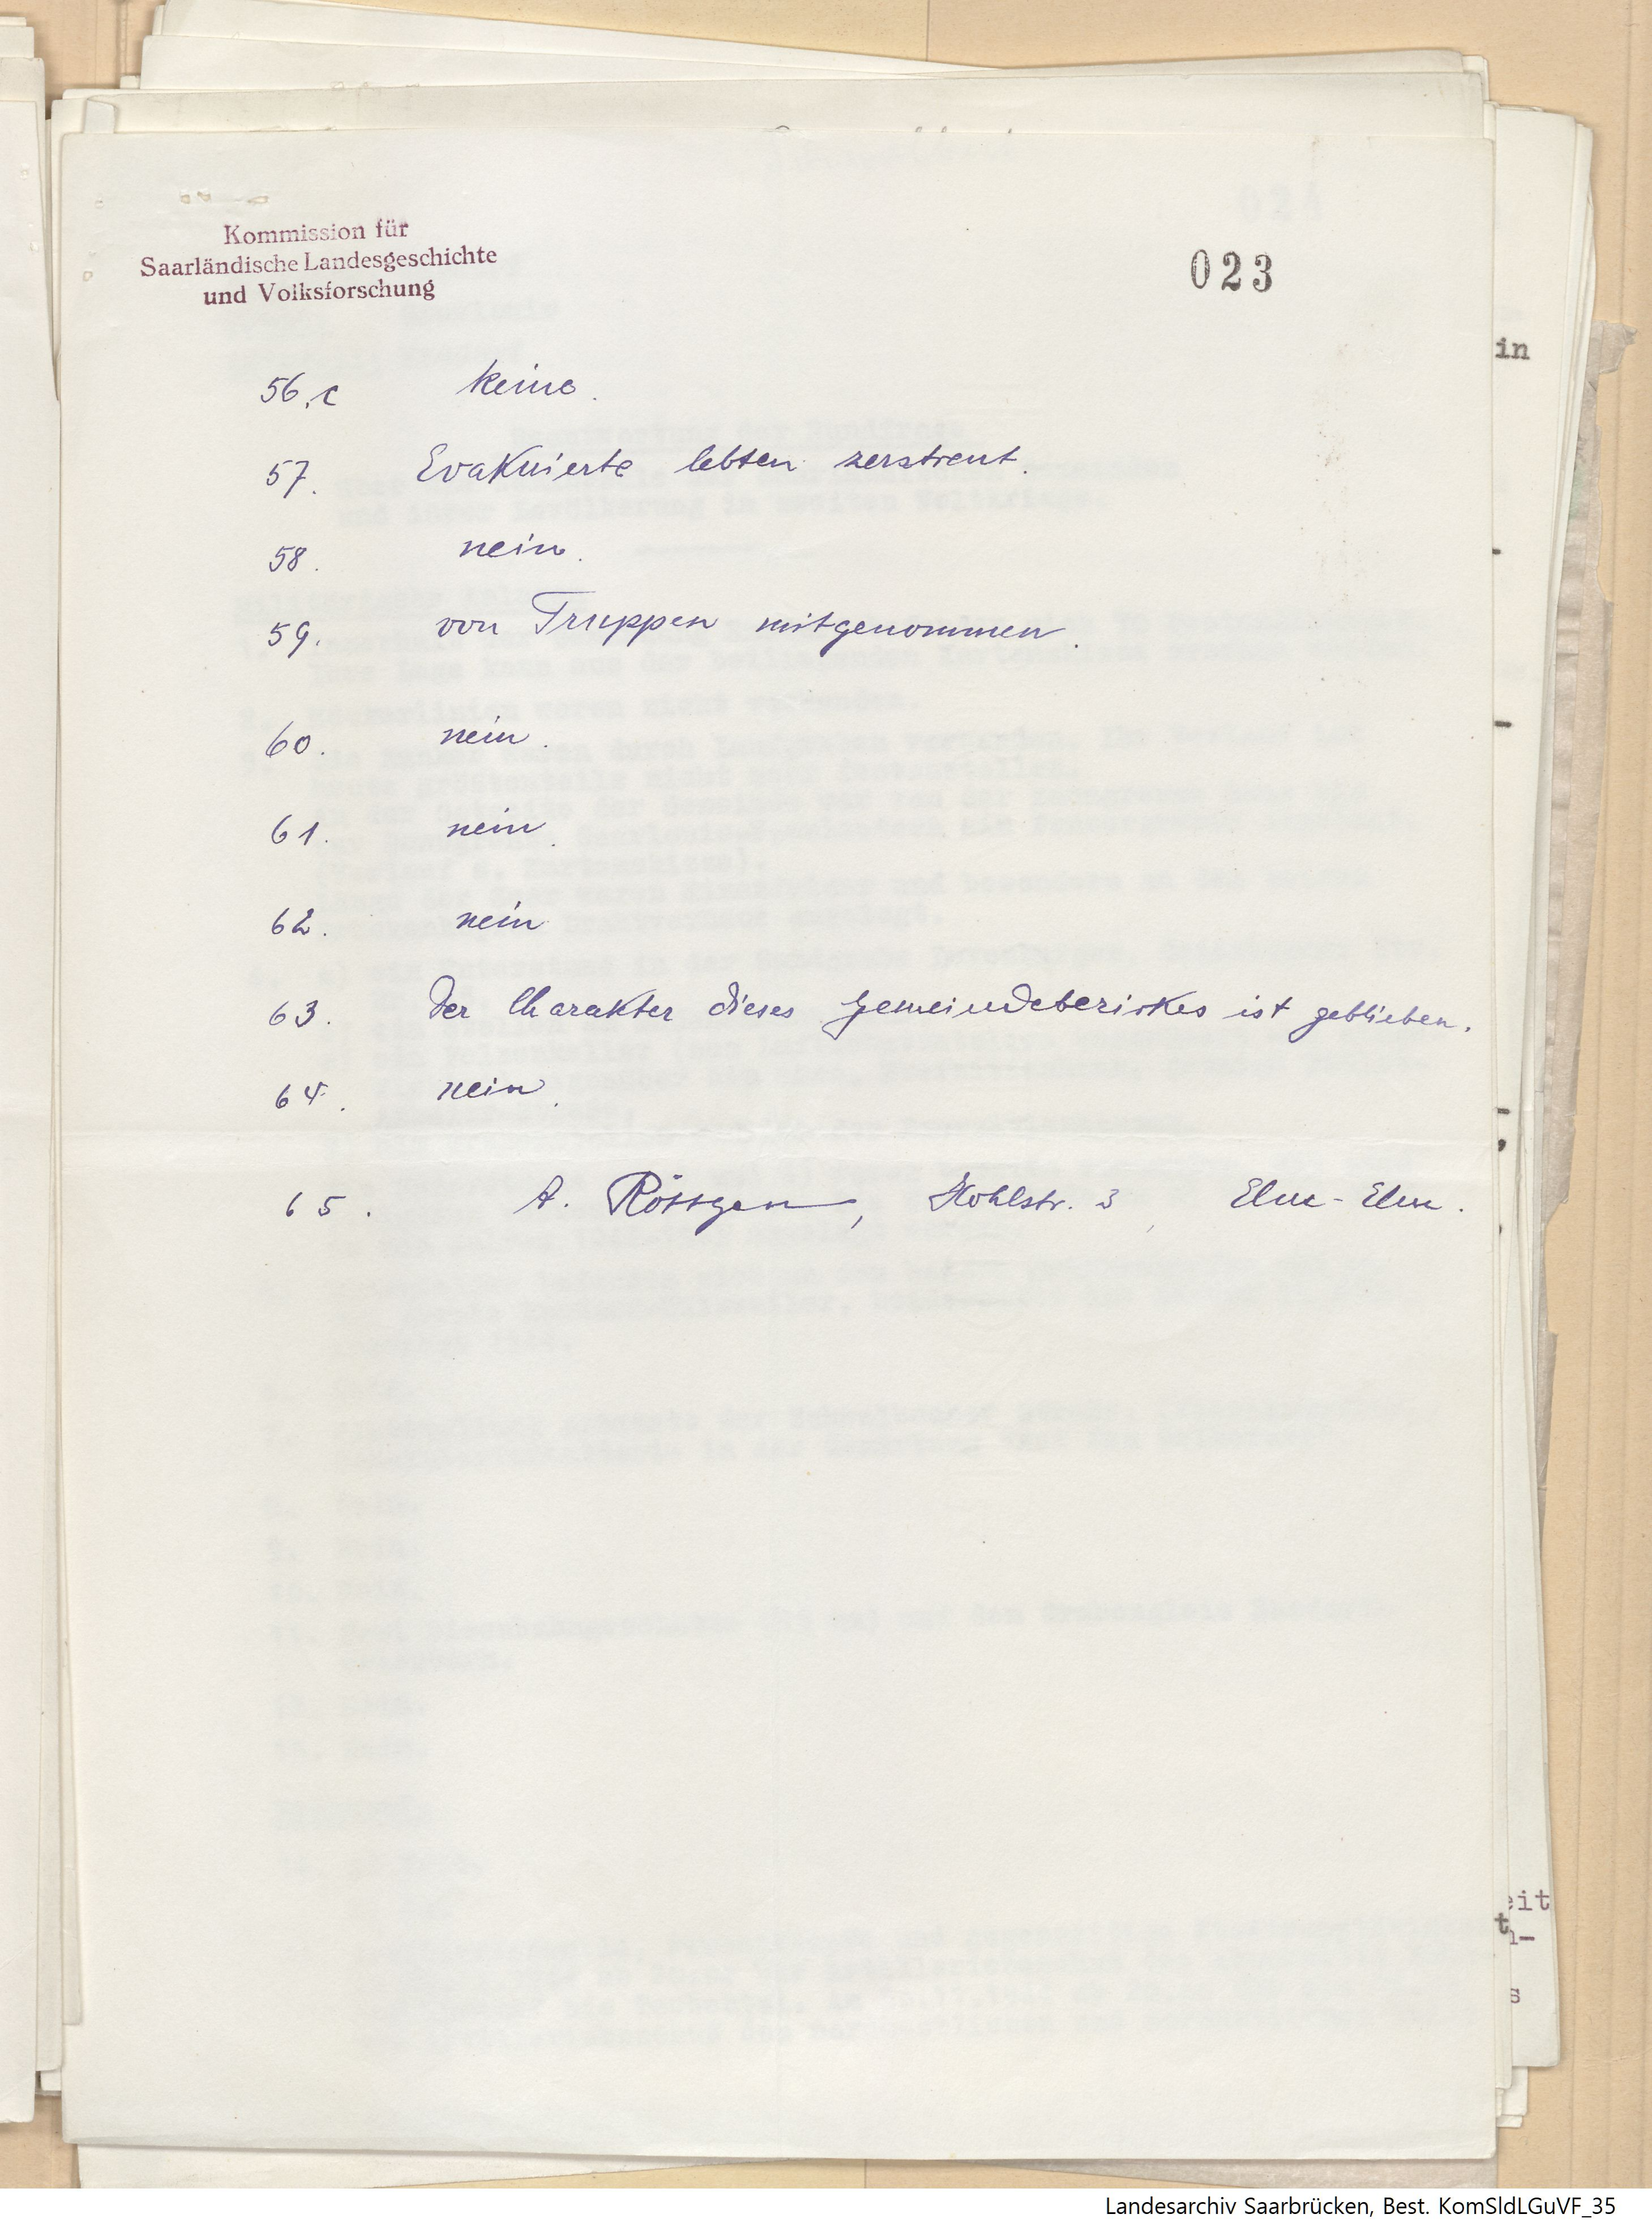 Kommission für
Saarländische Landesgeschichte
und Volksforschung
023
56.c keine.
57. Evakuierte lebten zerstreut.
58. nein.
59. von Truppen mitgenommen.
60. nein.
61. nein.
62. nein
63. Der Charakter dieses Gemeindebezirkes ist geblieben.
64. nein.
65. A. Röttgen, Hohlstr. 3, Elm-Elm.
in
eit
t
s
Landesarchiv Saarbrücken, Best. KomSldLGuVF_35